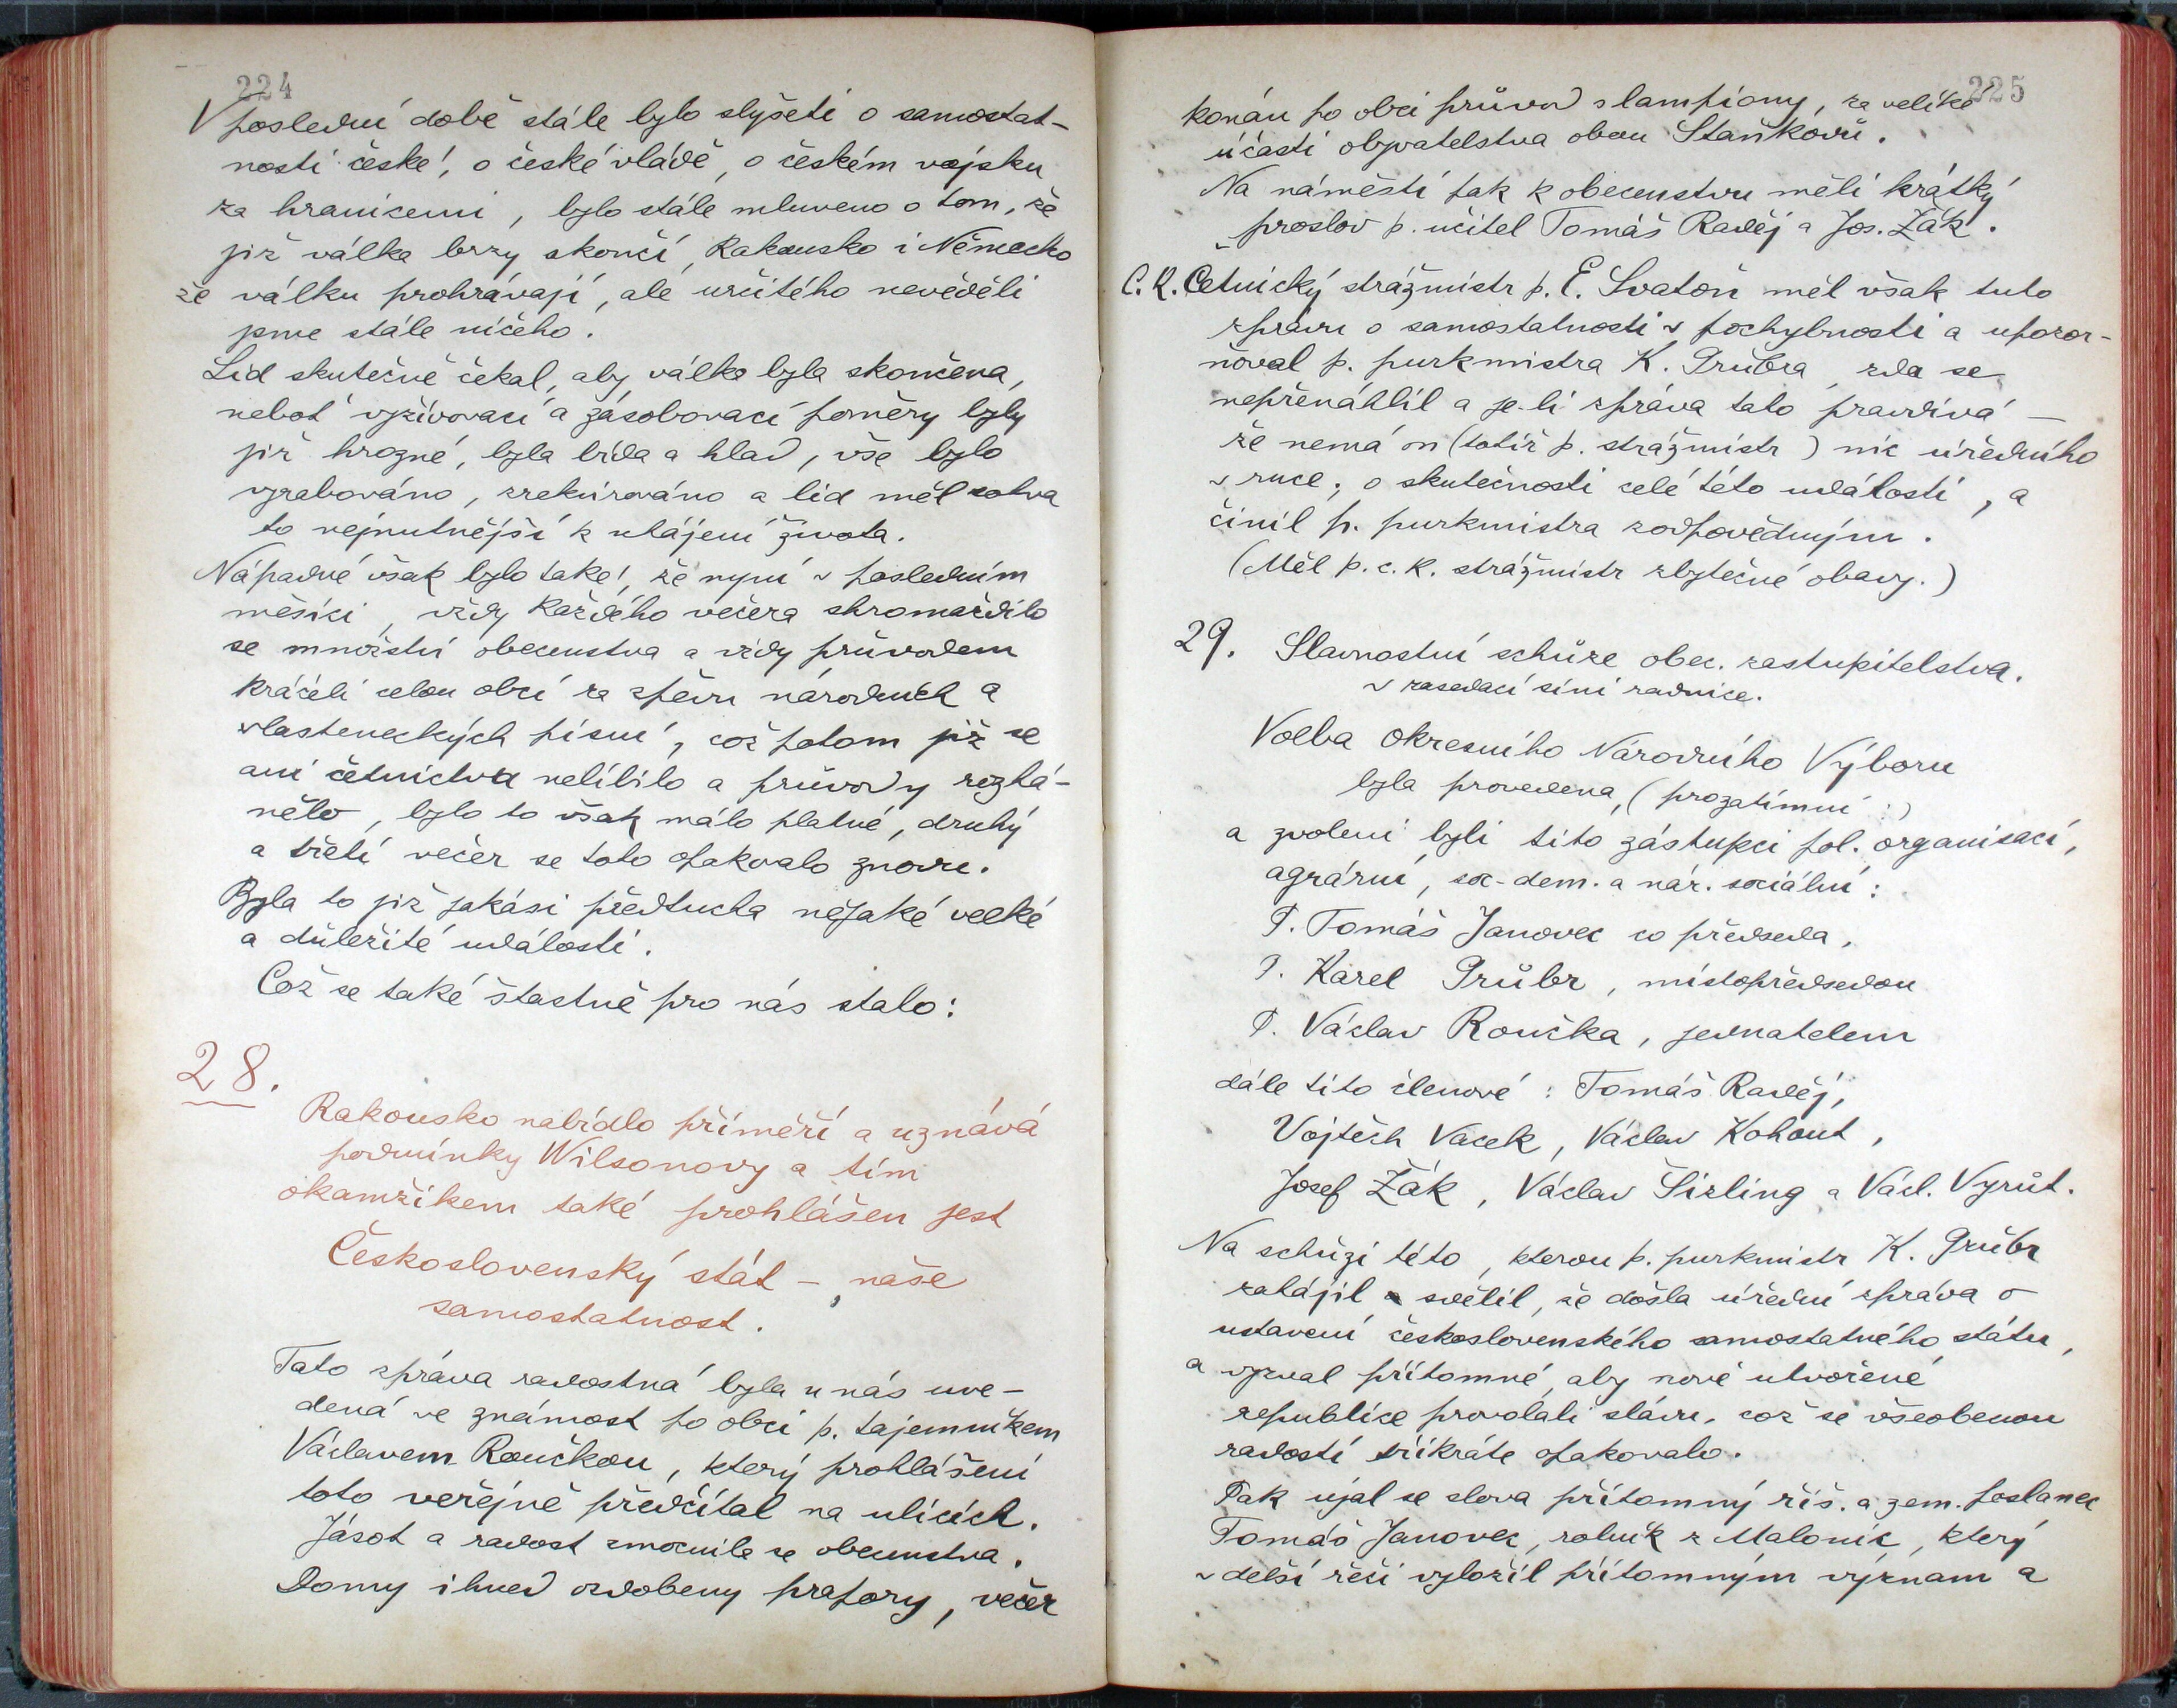 224
V poslední době stále bylo slyšeti o samostat-
nosti české, o české vládě, o českém vojsku
za hranicemi, bylo stále mluveno o tom, že
již válka brzy skončí, Rakousko i Německo
že válku prohrávají, ale určitého nevěděli
jsme stále ničeho.
Lid skutečně čekal, aby válka byla skončena,
neboť vyživovací a zásobovací poměry byly
již hrozné, byla bída a hlad, vše bylo
vyrabováno, zrekvirováno a lid měl sotva
to nejnutnější k uhájení života.
Nápadné však bylo také, že nyní v posledním
měsíci, vždy každého večera shromáždilo
se množství obecenstva a vždy průvodem
kráčeli celou obcí za zpěvu národních a
vlasteneckých písní, což potom již se
ani četnictvu nelíbilo a průvody rozhá-
nělo, bylo to však málo platné, druhý
a třetí večer se toto opakovalo znovu.
Byla to již jakási předtucha nějaké velké
a důležité události.
Což se také šťastně pro nás stalo:
28.
Rakousko nabídlo příměří a uznává
podmínky Wilsonovy a tím
okamžikem také prohlášen jest
Československý stát – naše
samostatnost.
Tato zpráva radostná byla u nás uve-
dená ve známost po obci p. tajemníkem
Václavem Roučkou, který prohlášení
toto veřejně předčítal na ulicích.
Jásot a radost zmocnila se obecenstva.
Domy ihned ozdobeny prapory, večer
225
konán po obci průvod s lampiony, za veliké
účasti obyvatelstva obou Staňkovů.
Na náměstí pak k obecenstvu měli krátký
proslov p. učitel Tomáš Raděj a Jos. Žák.
C. K. Četnický strážmistr p. E. Svatoň měl však tuto
zprávu o samostatnosti v pochybnosti a upozor-
ňoval p. purkmistra K. Grübra, zda se
nepřenáhlil a je-li zpráva tato pravdivá –
že nemá on (totiž p. strážmistr) nic úředního
v ruce, o skutečnosti celé této události, a
činil p. purkmistra zodpovědným.
(Měl p. c. k. strážmistr zbytečné obavy.)
29. Slavnostní schůze obec. zastupitelstva.
v zasedací síni radnice.
Volba Okresního Národního Výboru
byla provedena, (prozatímní:)
a zvoleni byli tito zástupci pol. organisací,
agrární, soc-dem. a nár. sociální:
P. Tomáš Janovec co předseda,
P. Karel Grübr, místopředsedou
P. Václav Roučka, jednatelem
dále tito členové: Tomáš Raděj,
Vojtěch Vacek, Václav Kohout,
Josef Žák, Václav Šizling a Václ. Vyrůt.
Na schůzi této, kterou p. purkmistr K. Grübr
zahájil sdělil, že došla úřední zpráva o
ustavení československého samostatného státu,
a vyzval přítomné, aby nově utvořené
republice provolali slávu, což se všeobecnou
radostí třikráte opakovalo.
Pak ujal se slova přítomný říš. a zem. poslanec
Tomáš Janovec, rolník z Malonic, který
v delší řeči vyložil přítomným význam a